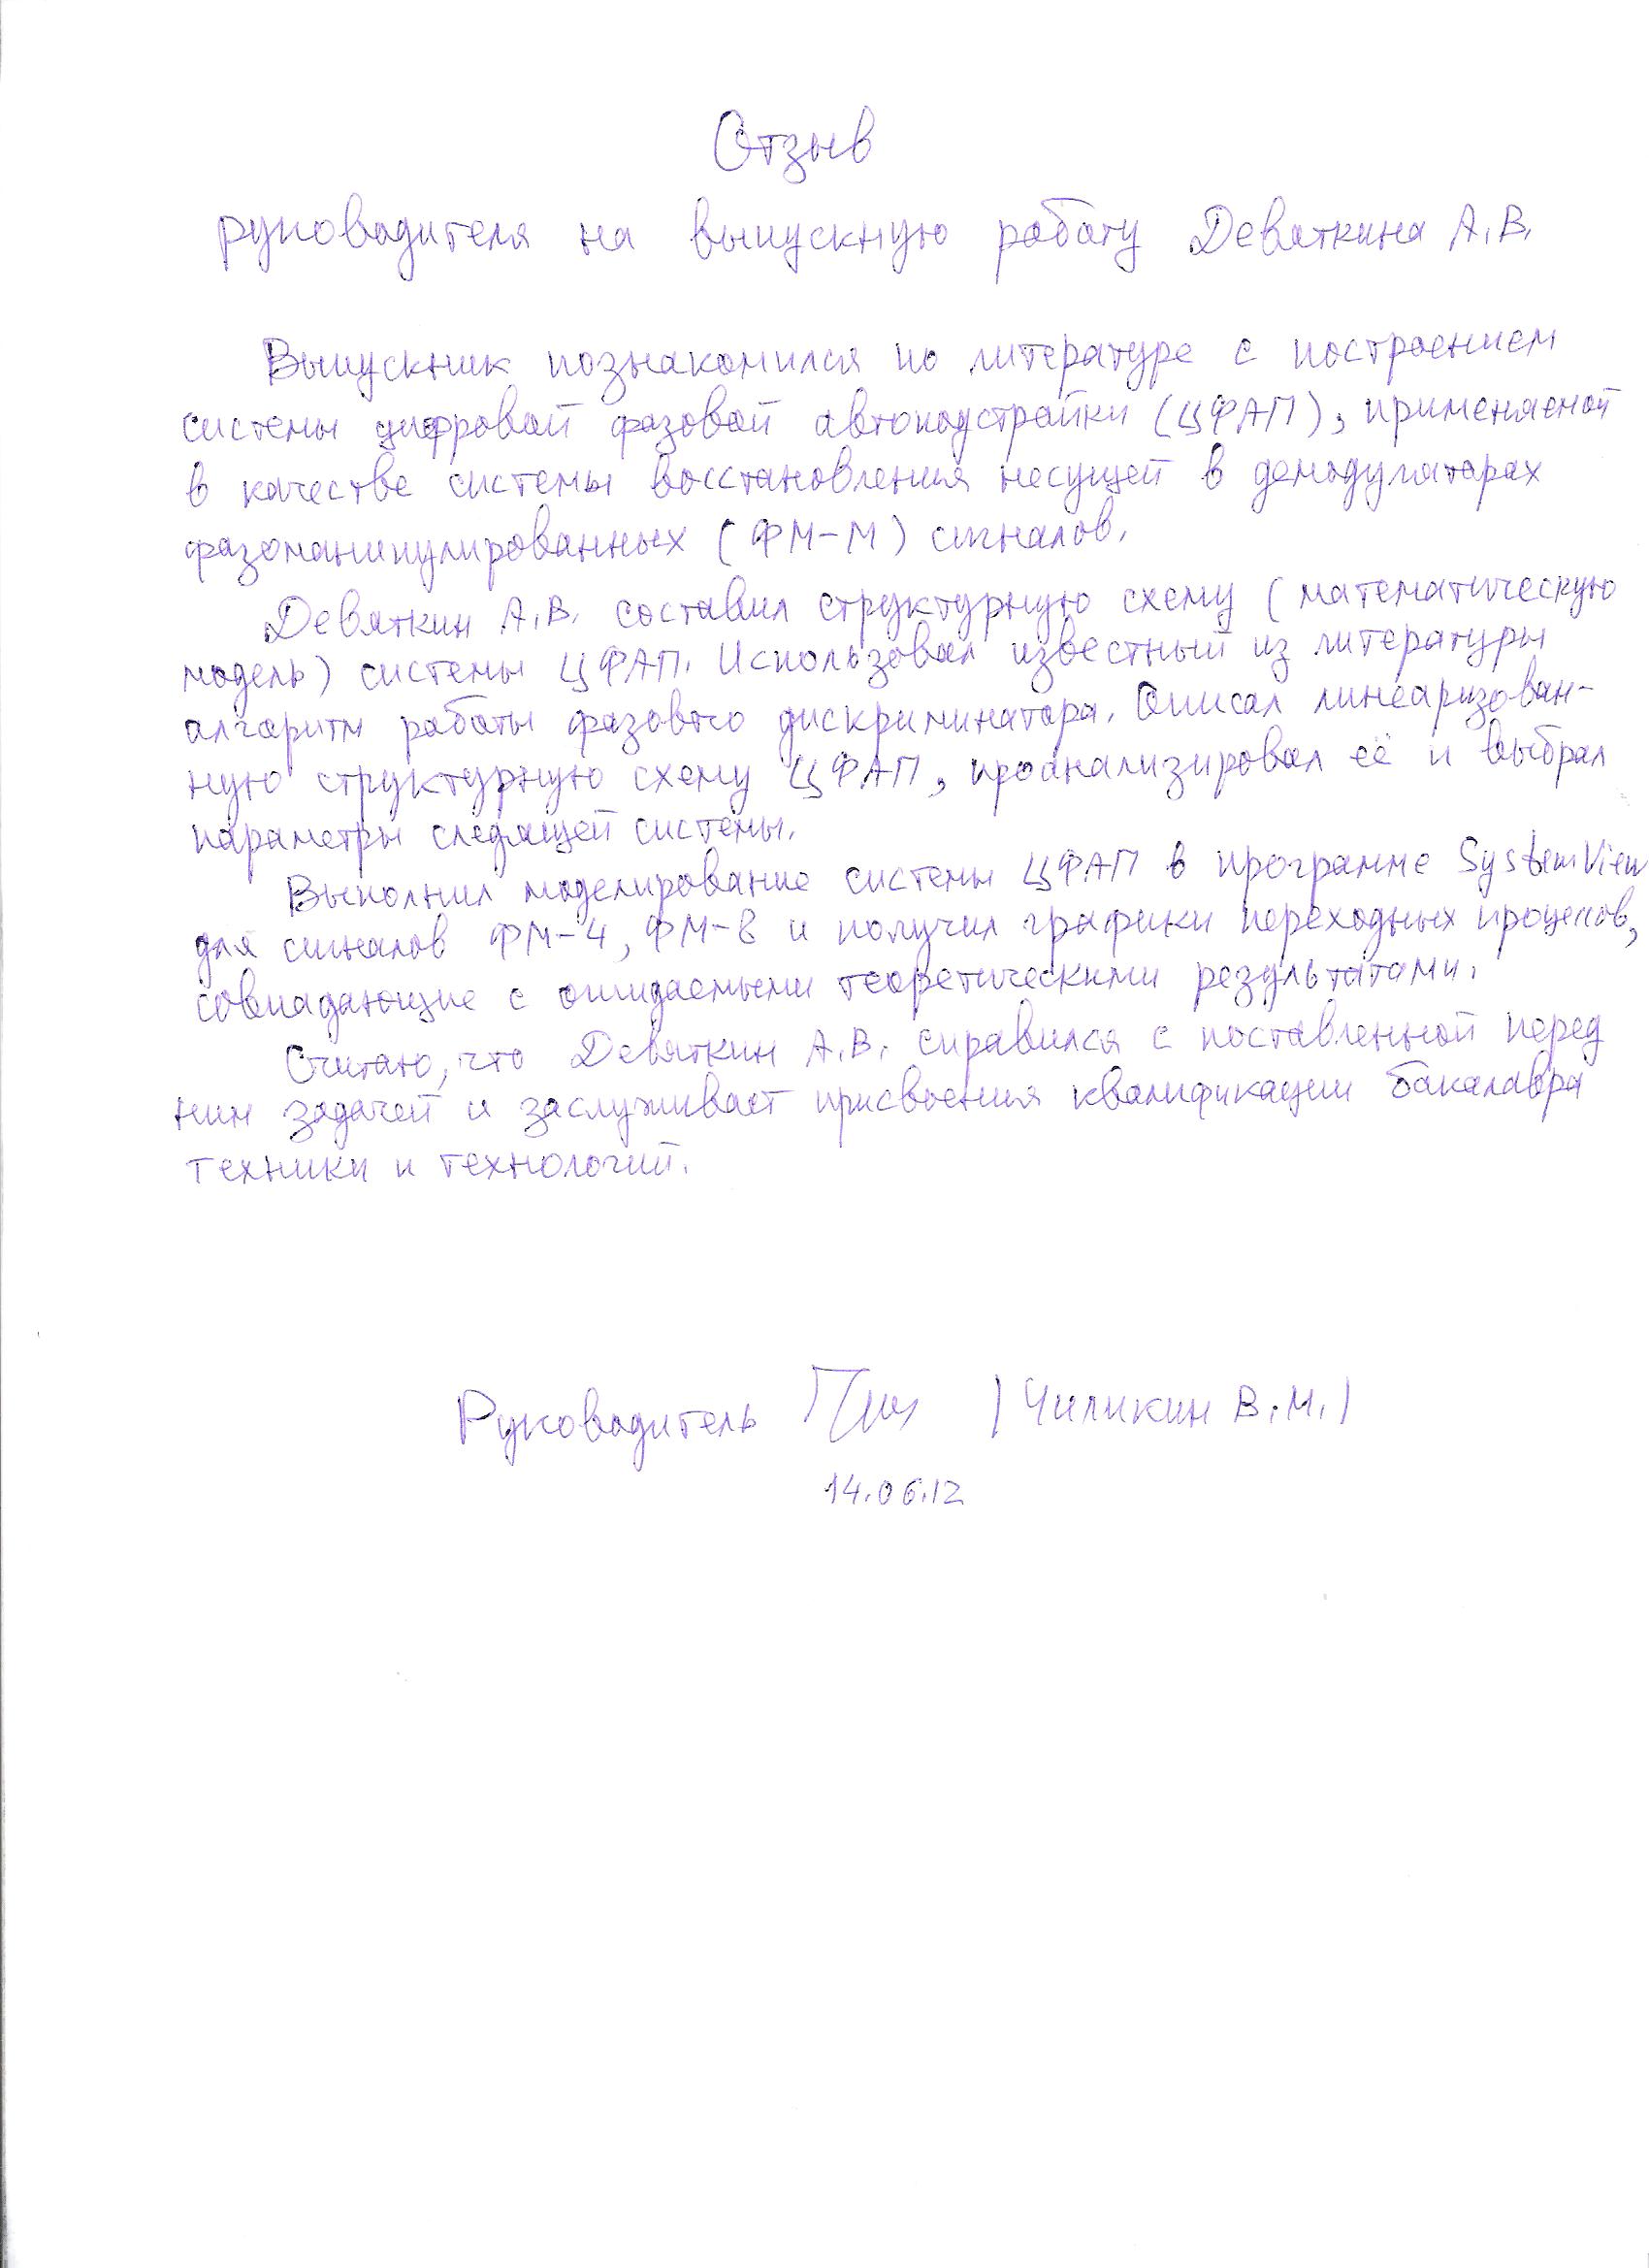 Отзыв
руководителя на выпускную работу Девяткина А.В.
Выпускник познакомился по литературе с построением
системы цифровой фазовой автоподстройки (ЦФАП), применяемой
в качестве системы восстановления несущей в демодуляторах
фазоманипулированных (ФМ-М) сигналов.
Девяткин А.В. составил структурную схему (математическую
модель) системы ЦФАП. Использовал известный из литературы
алгоритм работы фазового дискриминатора. Описал линеаризован-
ную структурную схему ЦФАП, проанализировал её и выбрал
параметры следящей системы.
Выполнил моделирование системы ЦФАП в программе SystemView
для сигналов ФМ-4, ФМ-8 и получил графики переходных процессов,
совпадающие с ожидаемыми теоретическими результатами.
Считаю, что Девяткин А.В. справился с поставленной перед
ним задачей и заслуживает присвоения квалификации бакалавра
техники и технологий.
Руководитель /Чиликин В.М./
14.06.12